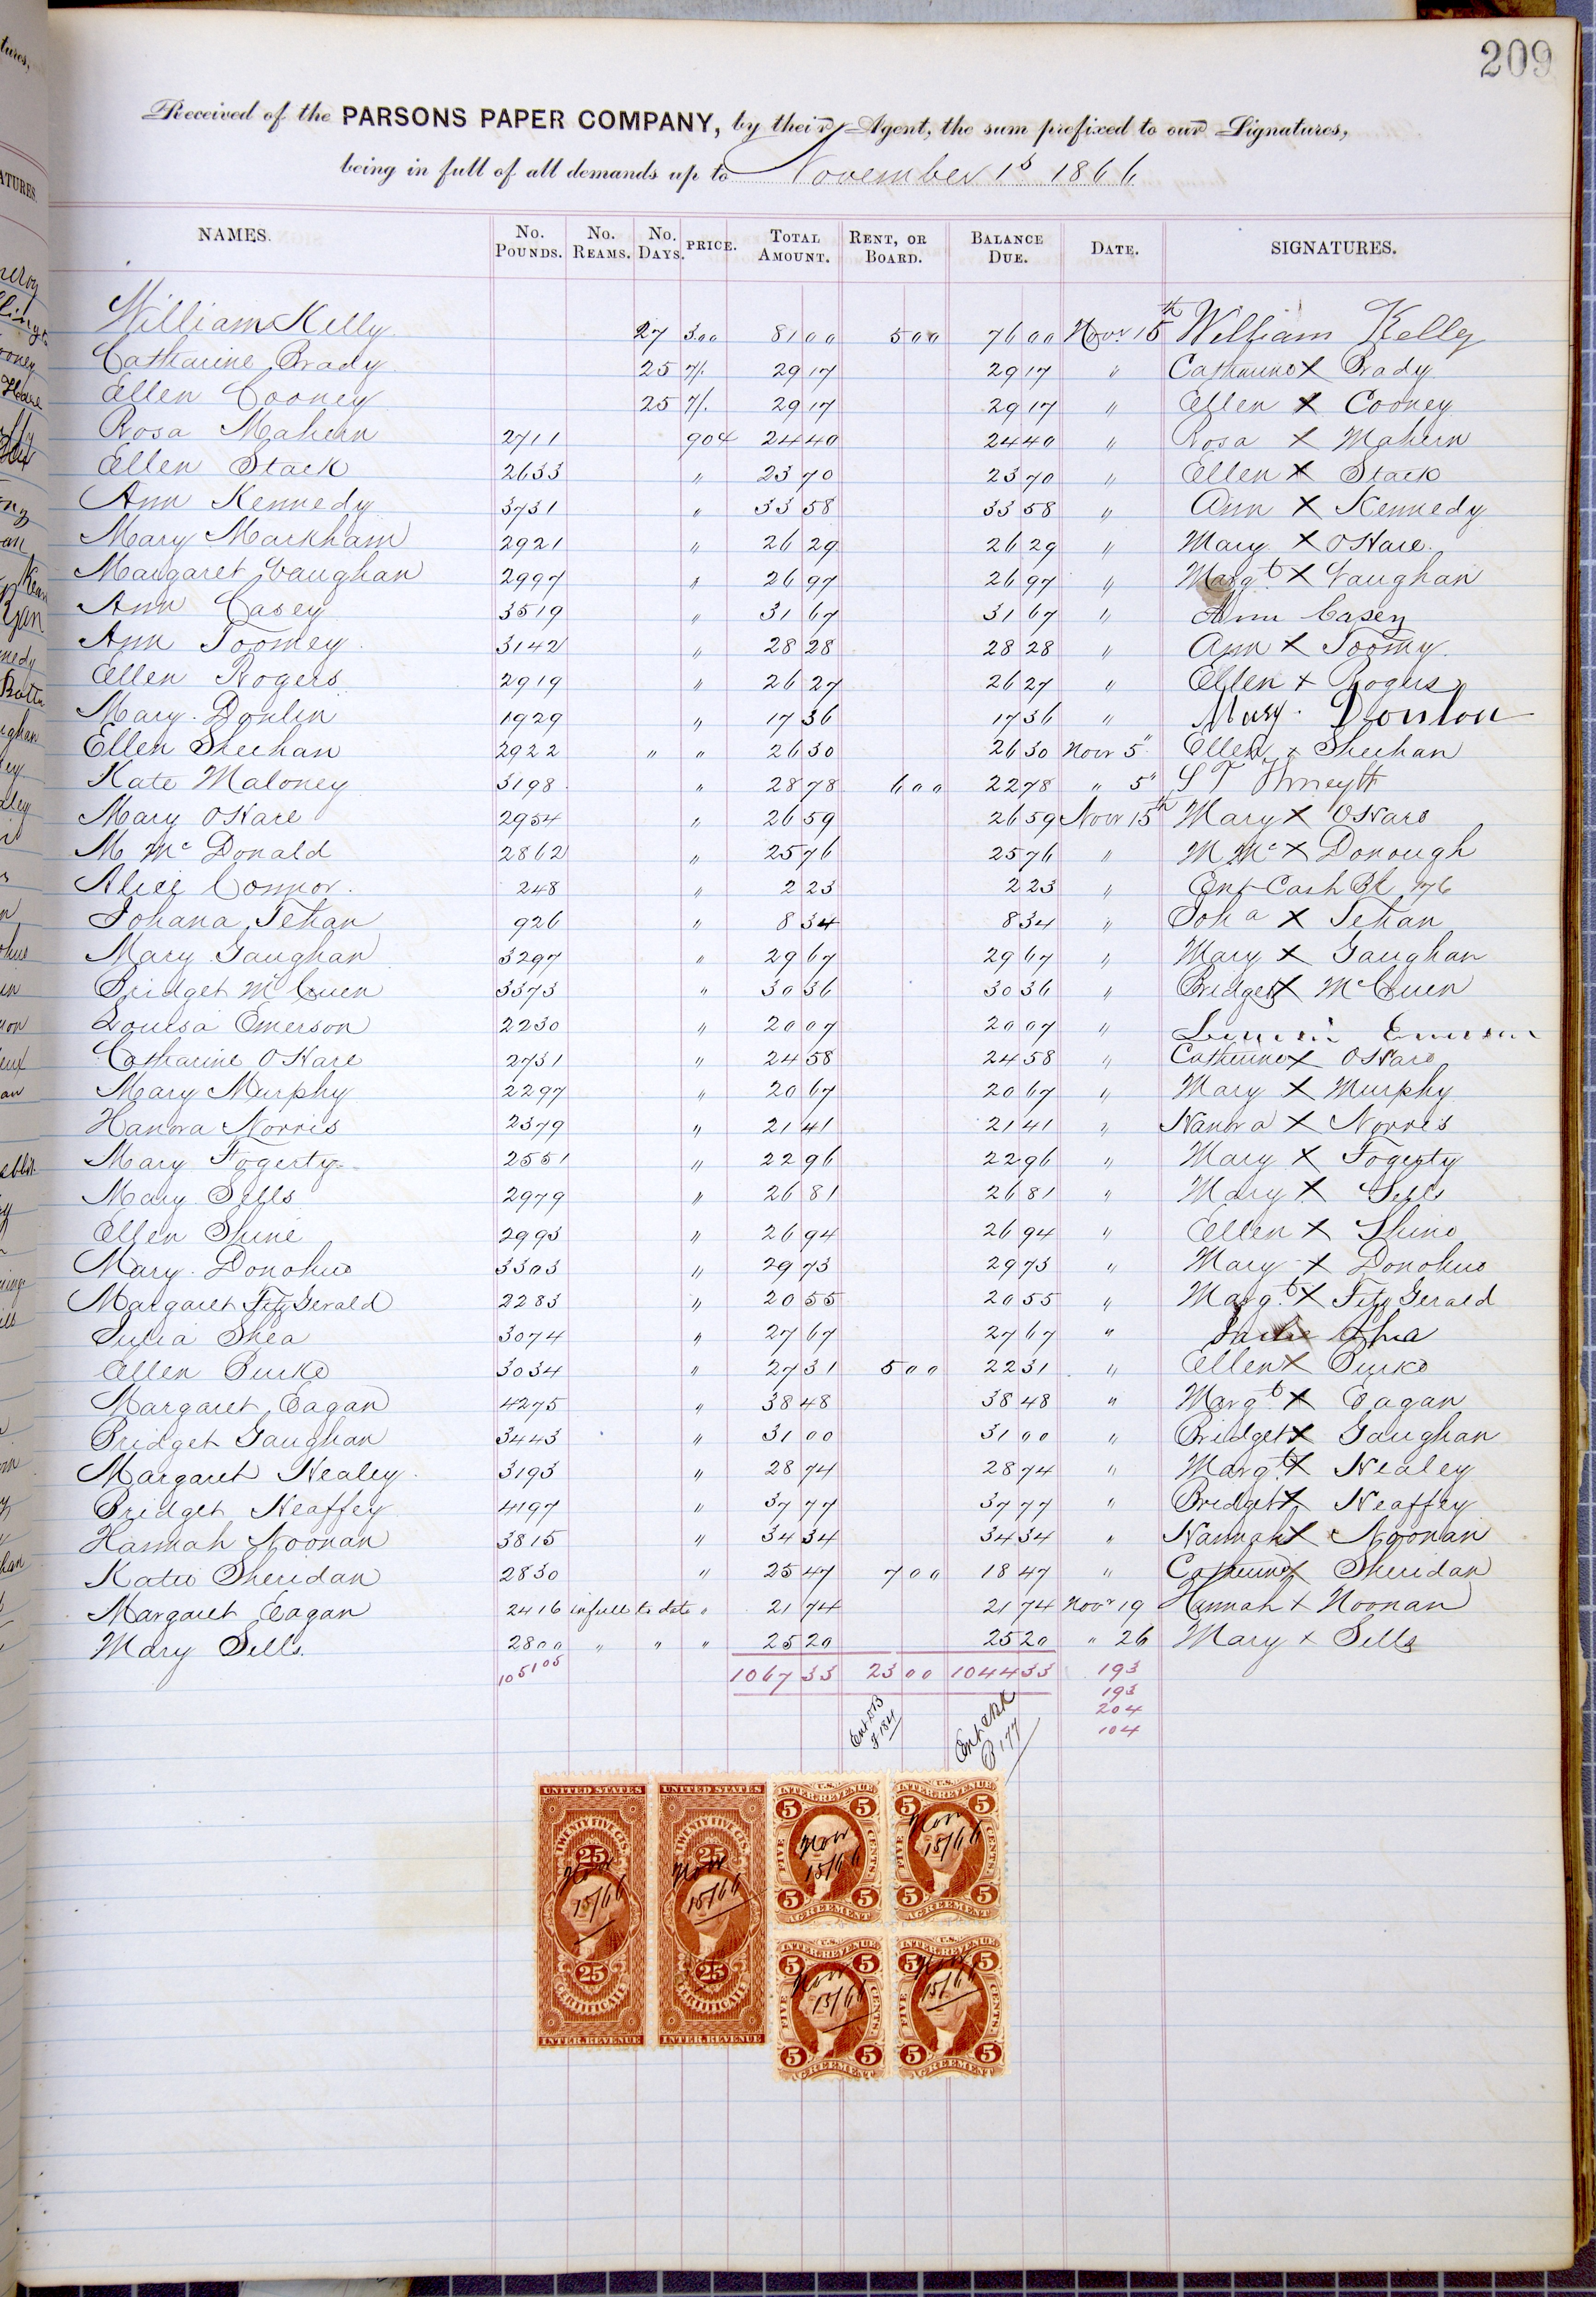 209
Received of the PARSONS PAPER COMPANY, by their Agent, the sum prefixed to our Signatures,
being in full of all demands up to November 1s 1866
NAMES. No. Pounds. No. Reams. No. Days. PRICE. Total Amount. Rent, or Board. Balance Due. Date. SIGNATURES.
William Kelly 27 3.00 81 00 5 00 76 00 Novr 15th William Kelly
Catharine Brady 25 7/. 29 17 29 17 " Catharine X Brady
Ellen Cooney 25 7/. 29 17 29 17 " Ellen X Cooney
Rosa Mahern 2711 90¢ 24 40 24 40 " Rosa X Mahern
Ellen Stack 2633 " 23 70 23 70 " Ellen X Stack
Ann Kennedy 3731 " 33 58 33 58 " Ann X Kennedy
Mary Markham 2921 " 26 29 26 29 " Mary X OHare
Margaret Vaughan 2997 " 26 97 26 97 " Margt X Vaughan
Ann Casey 3519 " 31 67 31 67 " Ann Casey
Ann Toomey 3142 " 28 28 28 28 " Ann X Toomy
Ellen Rogers 2919 " 26 27 26 27 " Ellen X Rogers
Mary Donlin 1929 " 17 36 17 36 " Mary Donlon
Ellen Sheehan 2922 " " 26 30 26 30 Novr 5" Ellen x Sheehan
Kate Maloney 3198 " 28 78 6 00 22 78 " 5" S T
Mary OHare 2954 " 26 59 26 59 Novr 15th Mary X OHare
M Mc Donald 2862 " 25 76 25 76 " M Mc X Donough
Alice Connor 248 " 2 23 2 23 " Ent Cash Bk 176
Johana Tehan 926 " 8 34 8 34 " Joha X Tehan
Mary Gaughan 3297 " 29 67 29 67 " Mary X Gaughan
Bridget McCuen 3373 " 30 36 30 36 " Bridget X McCuen
Louisa Emerson 2230 " 20 07 20 07 " Emerson
Catharine OHare 2731 " 24 58 24 58 " Catharine X OHare
Mary Murphy 2297 " 20 67 20 67 " Mary X Murphy
Hanora Norris 2379 " 21 41 21 41 " Hanora X Norris
Mary Fogerty 2551 " 22 96 22 96 " Mary X Fogerty
Mary Sells 2979 " 26 81 26 81 " Mary X Sells
Ellen Shine 2993 " 26 94 26 94 " Ellen X Shine
Mary Donohue 3303 " 29 73 29 73 " Mary X Donohue
Margaret FitzGerald 2283 " 20 55 20 55 " Margt X FitzGerald
Julia Shea 3074 " 27 67 27 67 " Julia Shea
Ellen Burke 3034 " 27 31 5 00 22 31 " Ellen X Burke
Margaret Eagan 4275 " 38 48 38 48 " Margt X Eagan
Bridget Gaughan 3443 " 31 00 31 00 " Bridget X Gaughan
Margaret Healey 3193 " 28 74 28 74 " Margt X Healey
Bridget Heaffey 4197 " 37 77 37 77 " Bridget X Heaffey
Hannah Noonan 3815 " 34 34 34 34 " Hannah X Noonan
Katie Sheridan 2830 " 25 47 7 00 18 47 " Catherine X Sheridan
Margaret Eagan 2416 in full to date " 21 74 21 74 Novr 19 Hannah + Noonan
Mary Sells 2800 " " " 25 20 25 20 " 26 Mary x Sells
105105 1067 33 23 00 1044 33 193
193
204
104
Ent DB
F 184
Ent CBK
P 177
UNITED STATES TWENTY FIVE CTS. 25 Nov 15/66 25 CERTIFICATE INTER.REVENUE
UNITED STATES TWENTY FIVE CTS. 25 Nov 15/66 25 CERTIFICATE INTER.REVENUE
U.S. INTER.REVENUE 5 5 FIVE CENTS. Nov 15/66 5 5 AGREEMENT
U.S. INTER.REVENUE 5 5 FIVE CENTS. Nov 15/66 5 5 AGREEMENT
U.S. INTER.REVENUE 5 5 FIVE CENTS. Nov 15/66 5 5 AGREEMENT
U.S. INTER.REVENUE 5 5 FIVE CENTS. Nov 15/66 5 5 AGREEMENT